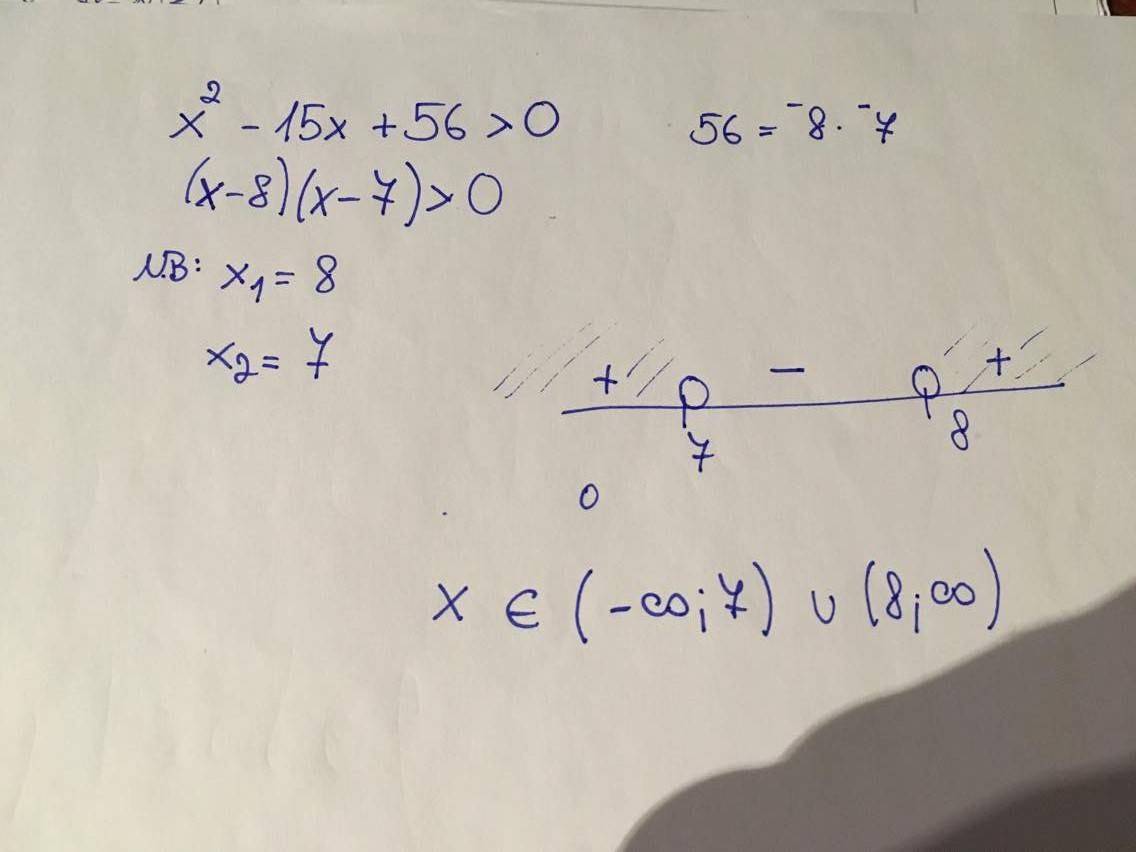 x² - 15x + 56 > 0
56 = ⁻8 · ⁻7
(x-8)(x-7) > 0
N.B: x₁ = 8
x₂ = 7
+ − +
7 8
0
x ∈ (-∞; 7) ∪ (8; ∞)